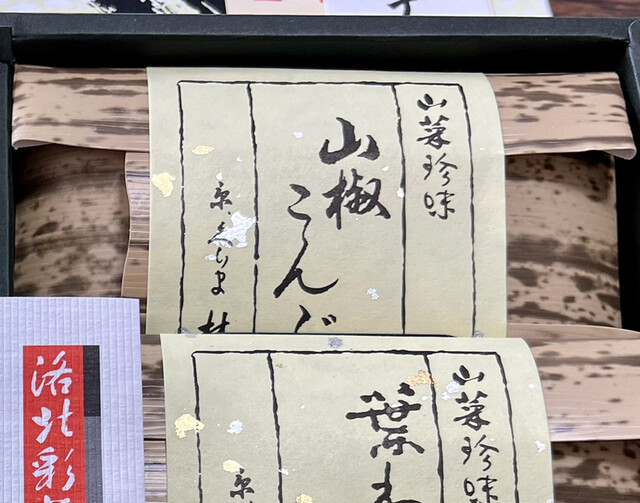 山菜珍味
山椒こんぶ
京くらま
山菜珍味
葉
京
洛北彩